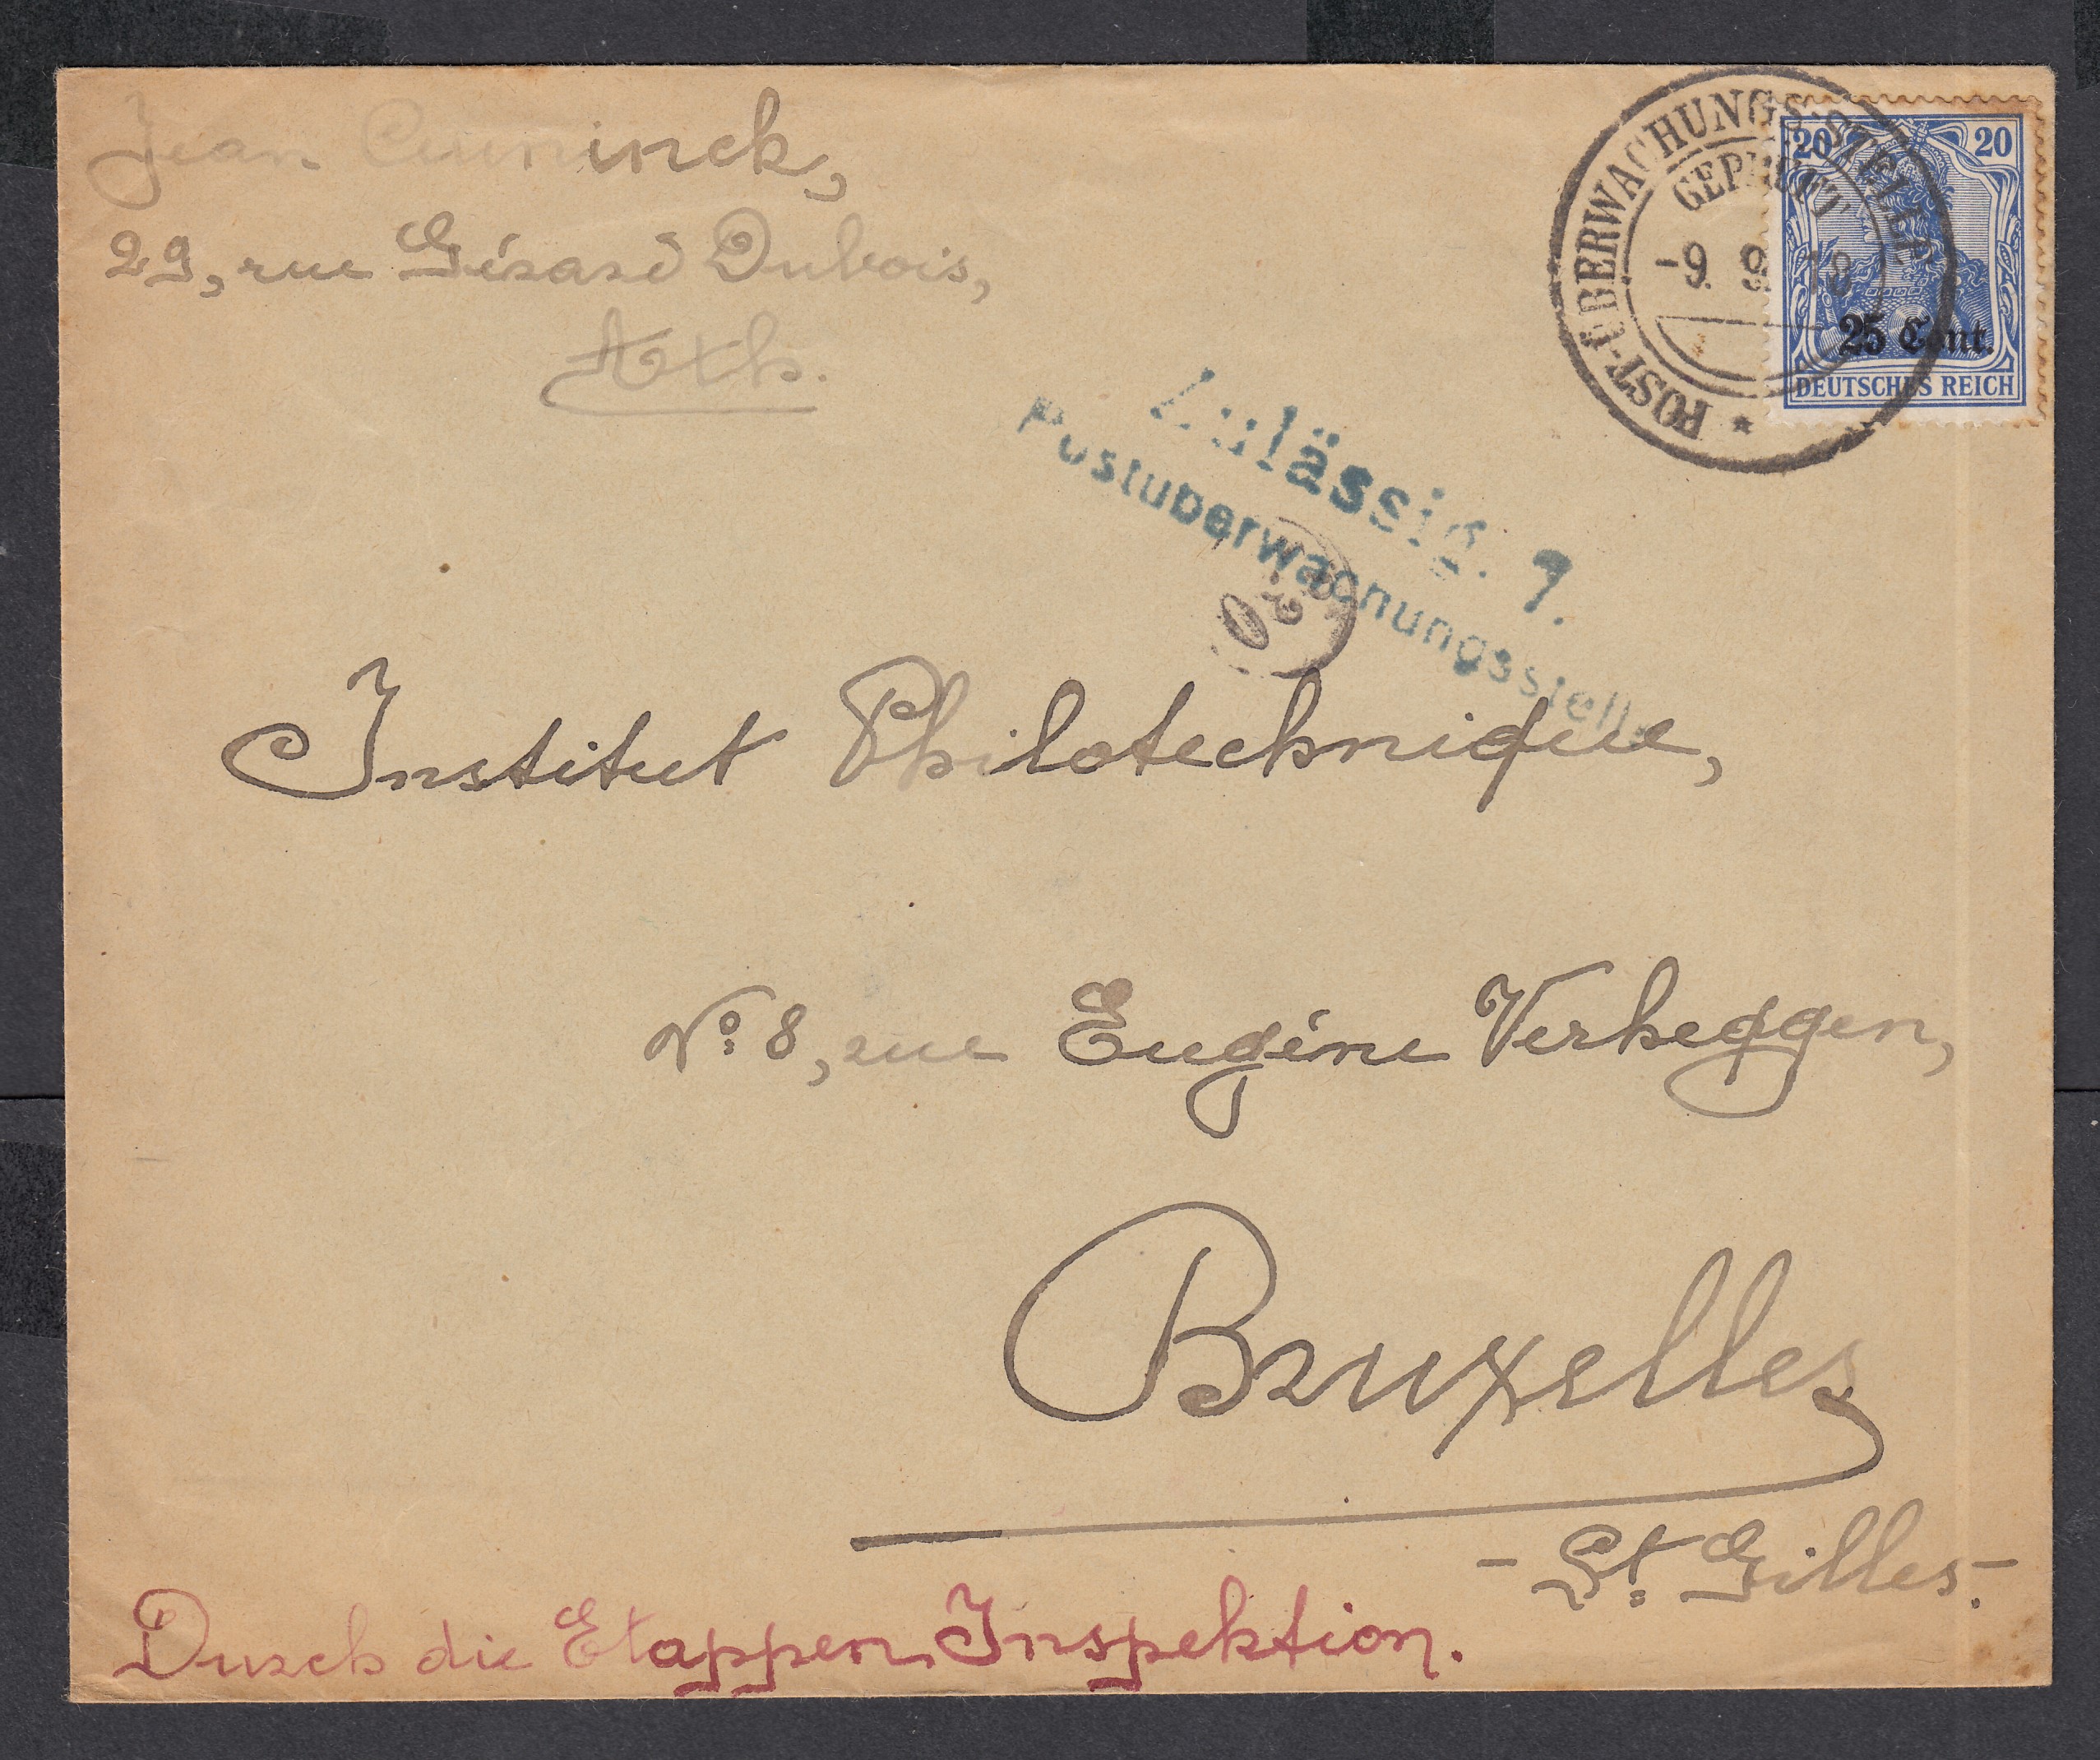 Jean Cuuninck,
29, rue Gérard Dubois,
Ath.
POST-ÜBERWACHUNGS-STELLE *
GEPRÜFT
-9. 9. 18
20 20
25 Cent.
DEUTSCHES REICH
Zulässig. 9.
Postüberwachungsstelle
Institut Philotechnique,
Nº 8, rue Eugéne Verheggen,
Bruxelles
- St. Gilles. -
Durch die Etappen Inspektion.